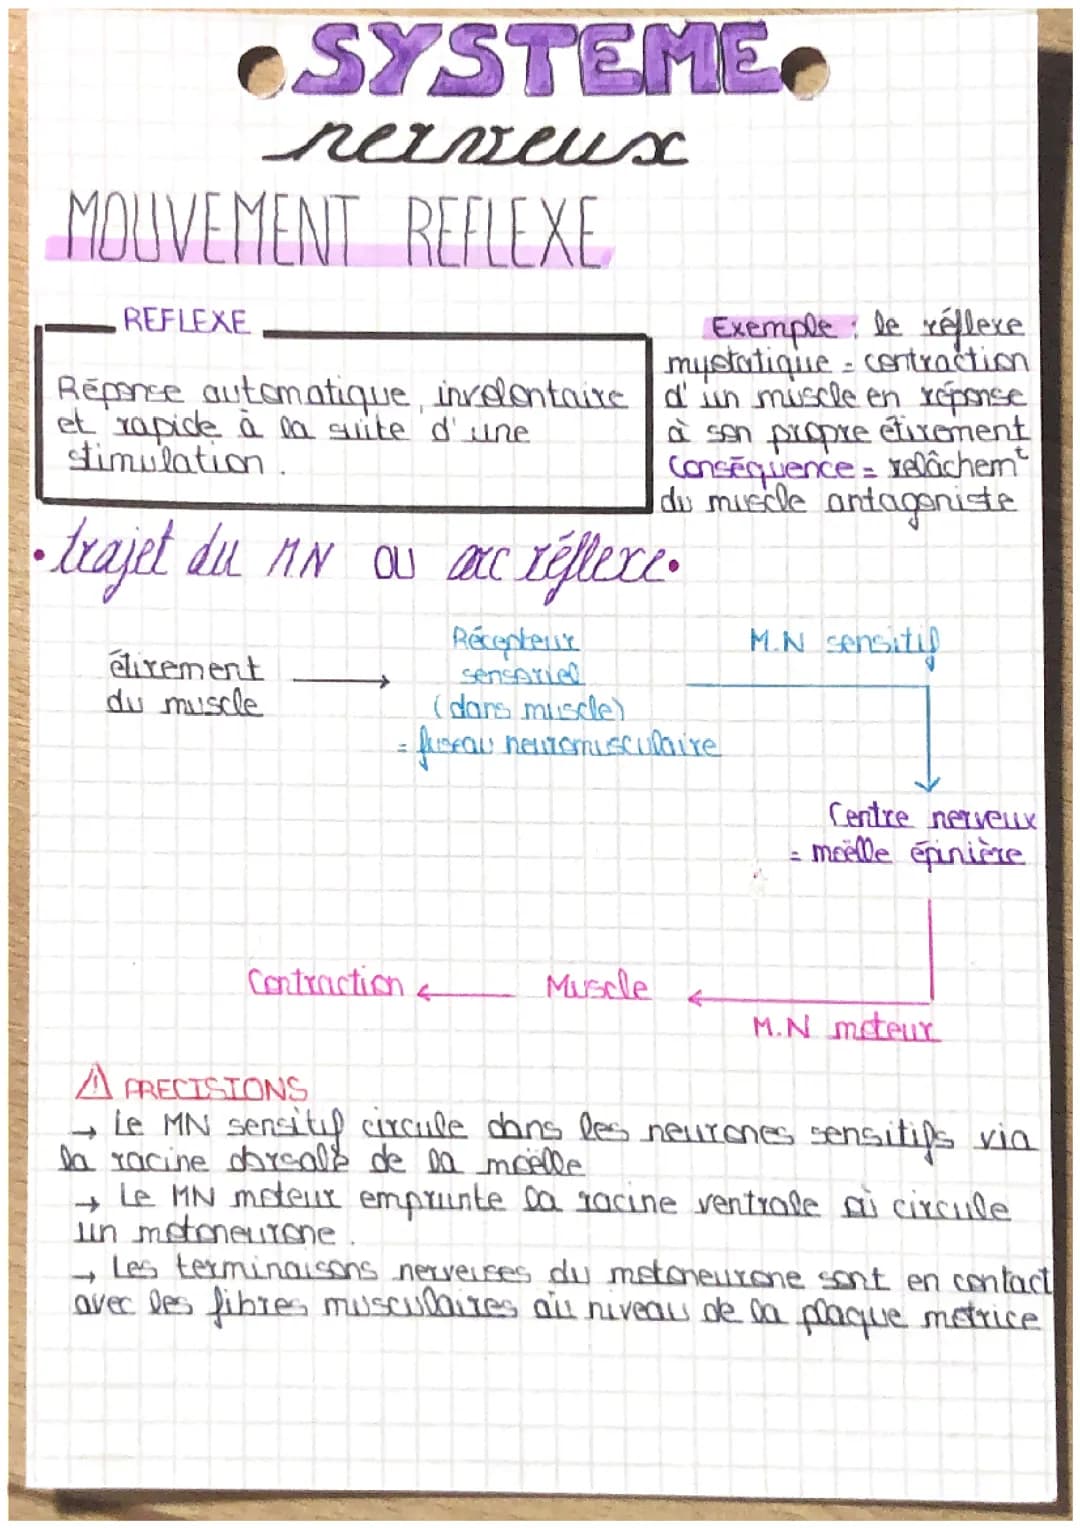 SYSTEME
nerveux
MOUVEMENT REFLEXE
REFLEXE
Réponse automatique, involontaire
et rapide à la suite d'une
stimulation.
Exemple : le réflexe
myotatique = contraction
d'un muscle en réponse
à son propre étirement
Conséquence = relâchemt
du muscle antagoniste
• trajet du MN ou arc réflexe •
étirement
du muscle
Récepteur
sensoriel
(dans muscle)
= fuseau neuromusculaire
M.N sensitif
Centre nerveux
= moëlle épinière
Contraction
Muscle
M.N moteur
⚠ PRECISIONS
→ Le MN sensitif circule dans les neurones sensitifs via
la racine dorsale de la moëlle
→ Le MN moteur emprunte la racine ventrale où circule
un motoneurone.
→ Les terminaisons nerveuses du motoneurone sont en contact
avec les fibres musculaires au niveau de la plaque motrice